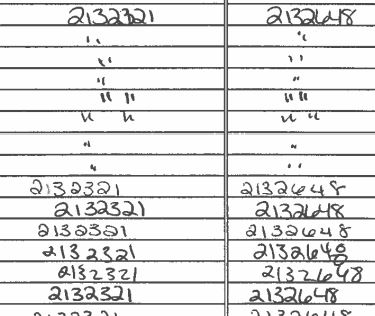 2132321 2132648
" "
" "
" "
" " " "
" " " "
" "
" "
2132321 2132648
2132321 2132648
2132321 2132648
2132321 2132648
2132321 2132648
2132321 2132648